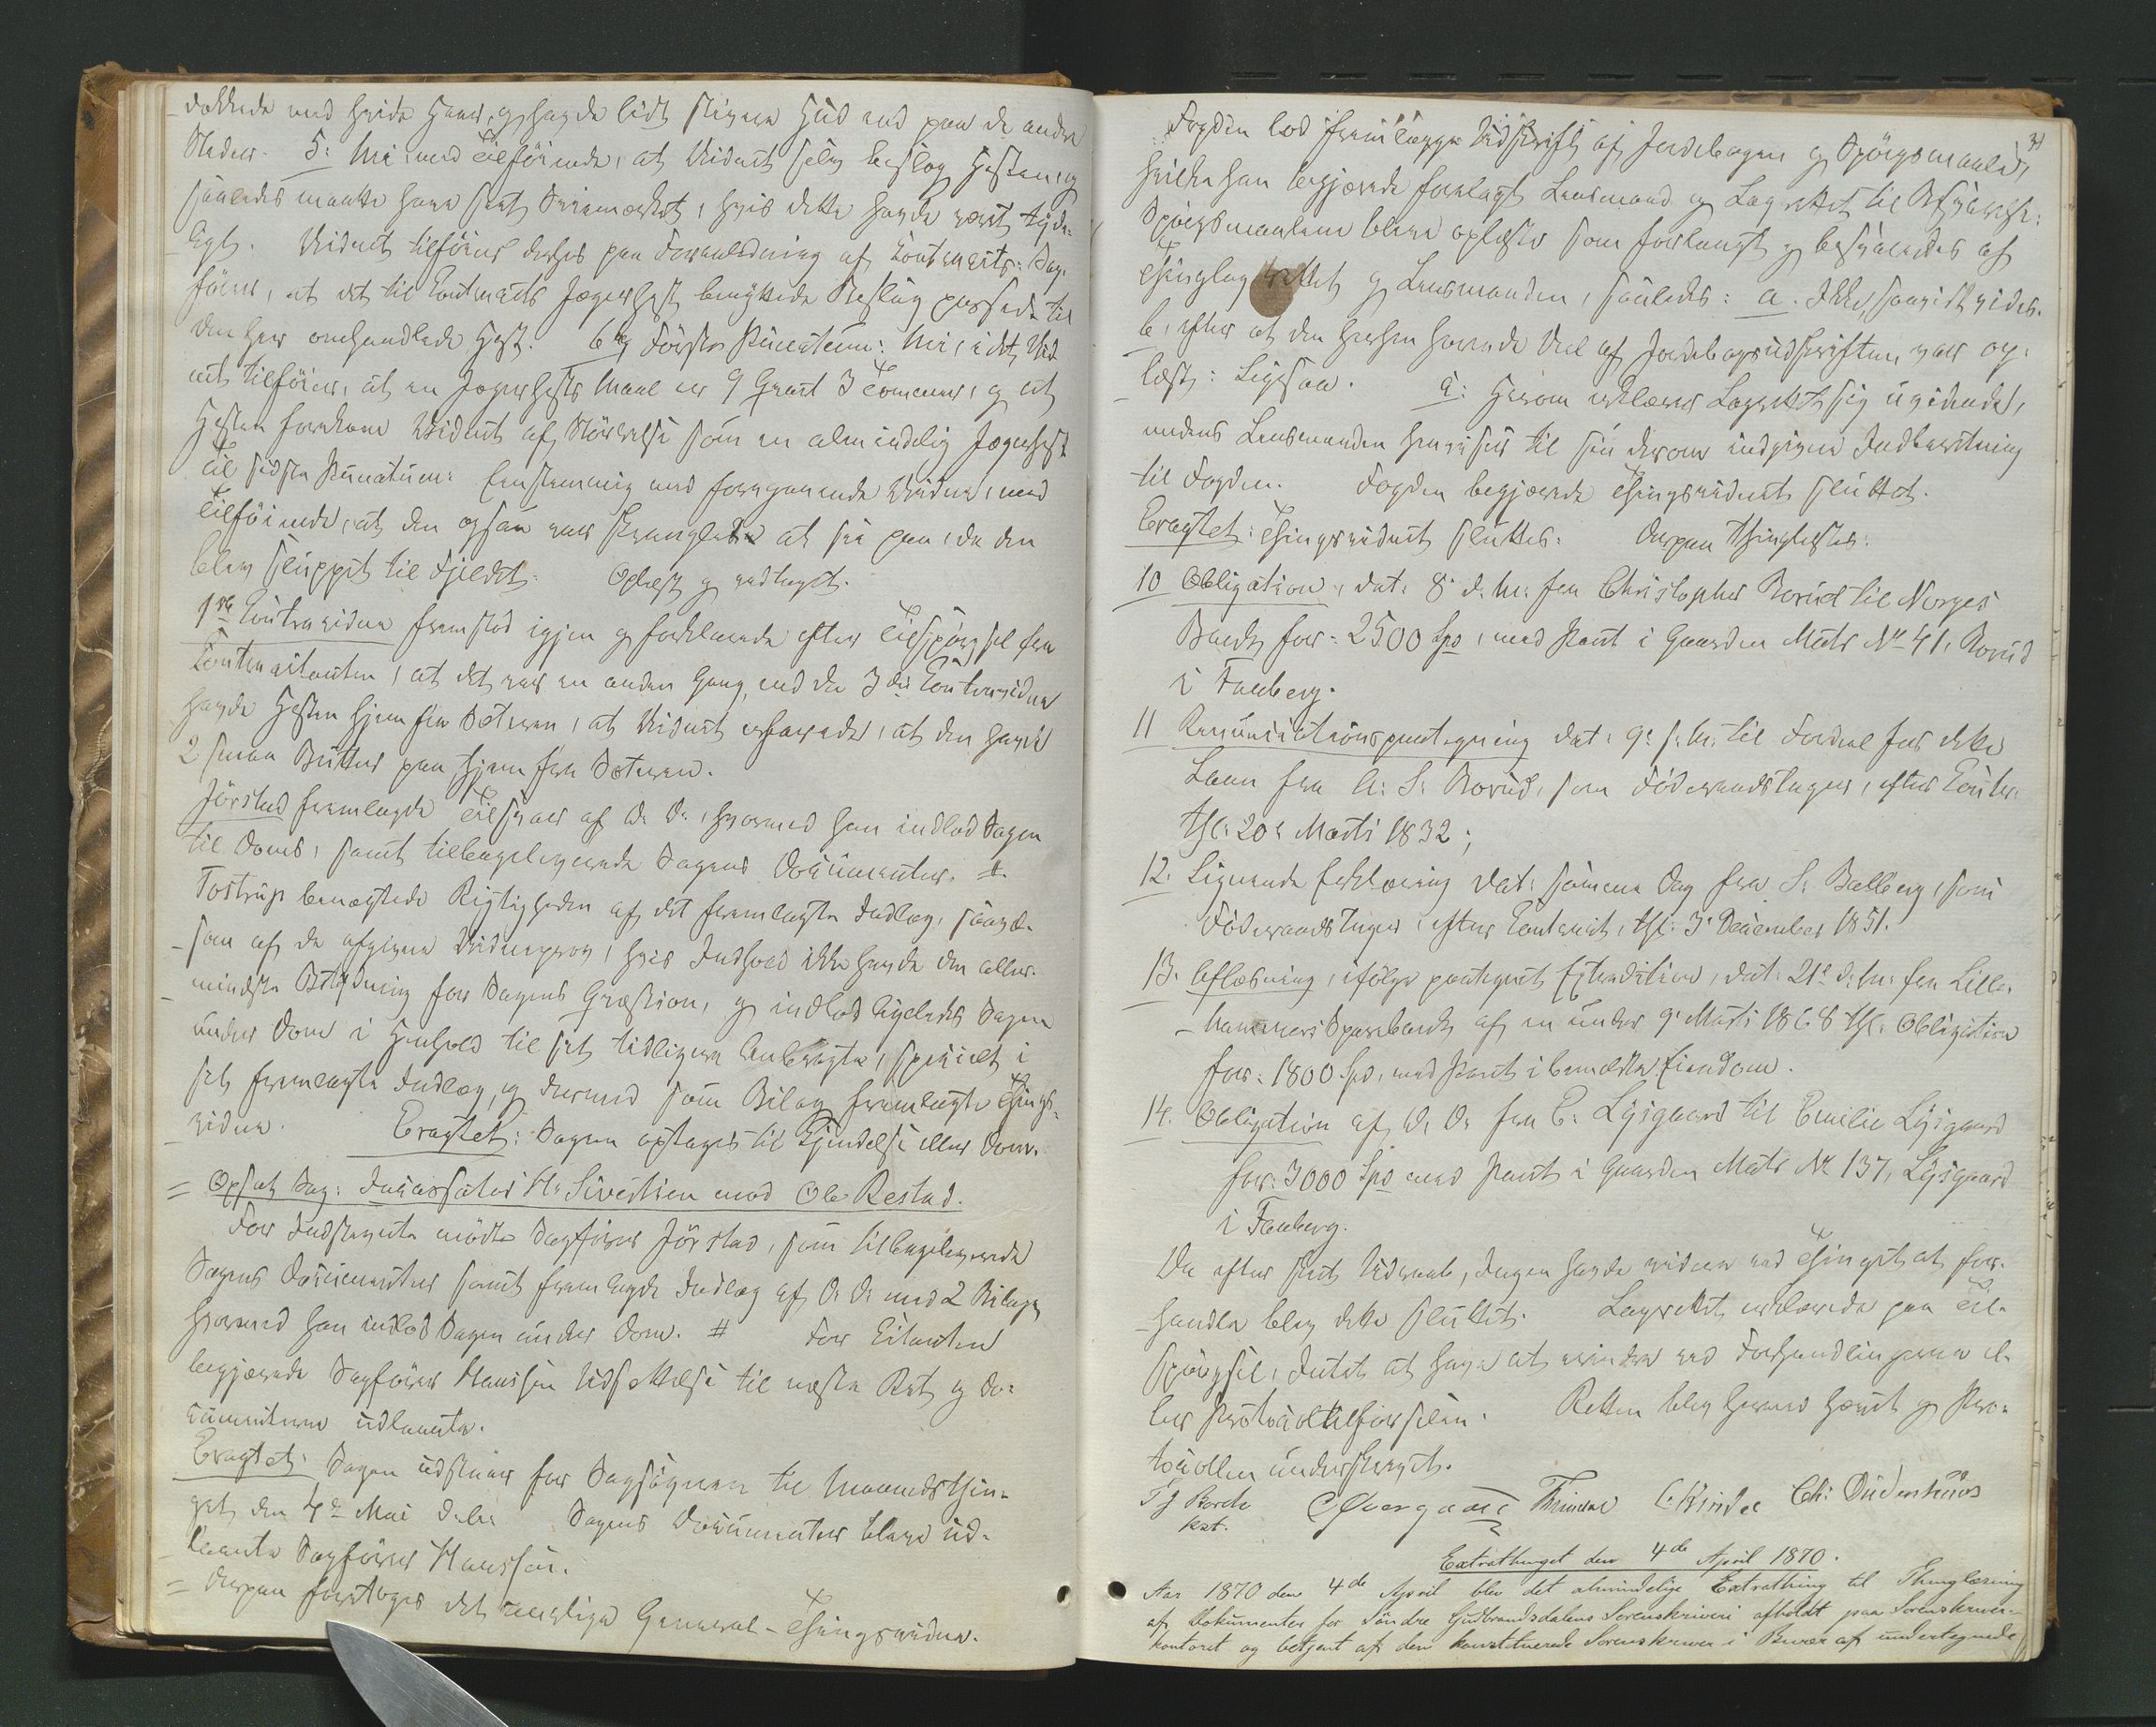 dækkede med hvide Haar, og havde lidt stivere Hud end paa de andre
Steder. 5: Nei, med Tilføiende, at Vidnet selv beslog Hesten og
saaledes maatte have seet Svimærket, hvis dette havde været tyde-
ligt. Vidnet tilføier derhos paa Foranledning af Contracits: Sag-
fører, at det til Contracits Jægerhest benyttede Beslag passede til
den her omhandlede Hest. 6 og Første Punctum: Nei, idet Vid-
net tilføier, at en Jægerhests Maal er 9 Qvart 3 Tommer, og at
Hesten forekom Vidnet af Størrelse som en almindelig Jægerhest
Til sidste Punctum: Eenstemmig med foregaaende Vidne, med
Tilføiende, at den ogsaa var skranglet at see paa, da den
blev sluppet til Fjelds. Oplæst og vedtaget.
1ste Contravidne fremstod igjen og forklarede efter Tilspørgsel fra
Contracitanten, at det var en anden Gang, end da 3die Contravidne
havde Hesten hjem fra Sæteren, at Vidnet erfarede, at den havde
2 smaa Butter paa hjem fra Sæteren.
Jørstad fremlagde Tilsvar af D. D., hvormed han indlod Sagen
til Doms, samt tilbageleverede Sagens Documenter. #
Tostrup benægtede Rigtigheden af det fremlagte Indlæg, saavel-
som af de afgivne Vidneprov, hvis Indhold ikke havde den aller-
mindste Betydning for Sagens Qvæstion, og indlod ligeledes Sagen
under Dom i Henhold til sit tidligere Anbragte, specielt i
sit fremlagte Indlæg, og dermed som Bilag fremlagte Things-
vidne. Eragtet: Sagen optages til Kjendelse eller Dom.
= Opsat Sag: Incassator H. Sivertsen mod Ole Restad.
For Indstevnte mødte Sagfører Jørstad, som tilbageleverede
Sagens Documenter samt fremlagde Indlæg af D. D. med 2 Bilage
hvormed han indlod Sagen under Dom. # For Citanten
begjærede Sagfører Hanssen Udsættelse til næste Ret og Do-
cumenterne udlaante.
Eragtet: Sagen udstaaer for Sagsøgeren til Maanedsthin-
get den 4de Mai d.A. Sagens Documenter bleve ud-
laante Sagfører Hanssen.
= Derpaa foretoges det aarlige General-Thingsvidne.
Fogden lod fremlægge Udskrift af Jordebogen og Spørgsmaale,
hvilke han begjærede forelagt Lensmand og Lagrettet til Besvarelse:
Spørgsmaalene bleve oplæste som forlangt og besvaredes af
Thinglagrettet og Lensmanden, saaledes: a. Ikke, saavidt vides.
b, efter at den herhen hørende Deel af Jordebogsudskriften var op-
læst: Ligesaa. c: Herom erklærer Lagrettet sig uvidende,
medens Lensmanden henviser til sin derom indgivne Indberetning
til Fogden. Fogden begjærede Thingsvidnet sluttet.
Eragtet: Thingsvidnet sluttes. Derpaa thinglæstes:
10 Obligation, dat. 8. d. M. fra Christopher Rovud til Norges
Bank for 2500 Spd, med Pant i Gaarden Matr No 41, Rovud
i Faaberg.
11 Renunciationspaategning dat. 9. s. M. til Fordeel for dette
Laan fra A. S. Rovud, som Føderaadstager, efter Contr.
thl. 20. Marts 1832;
12. Lignende Erklæring dat. samme Dag fra S. Balberg, som
Føderaadstager, efter Contract, thl. 3. December 1851.
13. Aflæsning, ifølge paategnet Extradition, dat. 21. d. M. fra Lille-
hammers Sparebank af en under 9. Marts 1868 thl. Obligation
for 1800 Spd, med Pant i bemeldte Eiendom.
14. Obligation af D. D. fra E. Lysgaard til Emilie Lysgaard
for 3000 Spd med Pant i Gaarden Matr No 137, Lysgaard
i Faaberg.
Da efter skeet Udraab, Ingen havde videre ved Thinget at for-
handle blev dette sluttet. Lagrettet erklærede paa Til-
spørgsel, Intet at have at erindre ved Forhandlingerne el-
ler Protocoltilførselen. Retten blev herved hævet og Pro-
tocollen underskrevet.
T J Borch
kst.
C Overgaard Ch. Dudenhaus
Extrathinget den 4de April 1870.
Aar 1870 den 4de April blev det almindelige Extrathing til Thinglæsning
af Dokumenter for Søndre Gudbrandsdalens Sorenskriveri afholdt paa Sorenskriver-
kontoret og betjent af den konstituerede Sorenskriver i Overvær af undertegnede